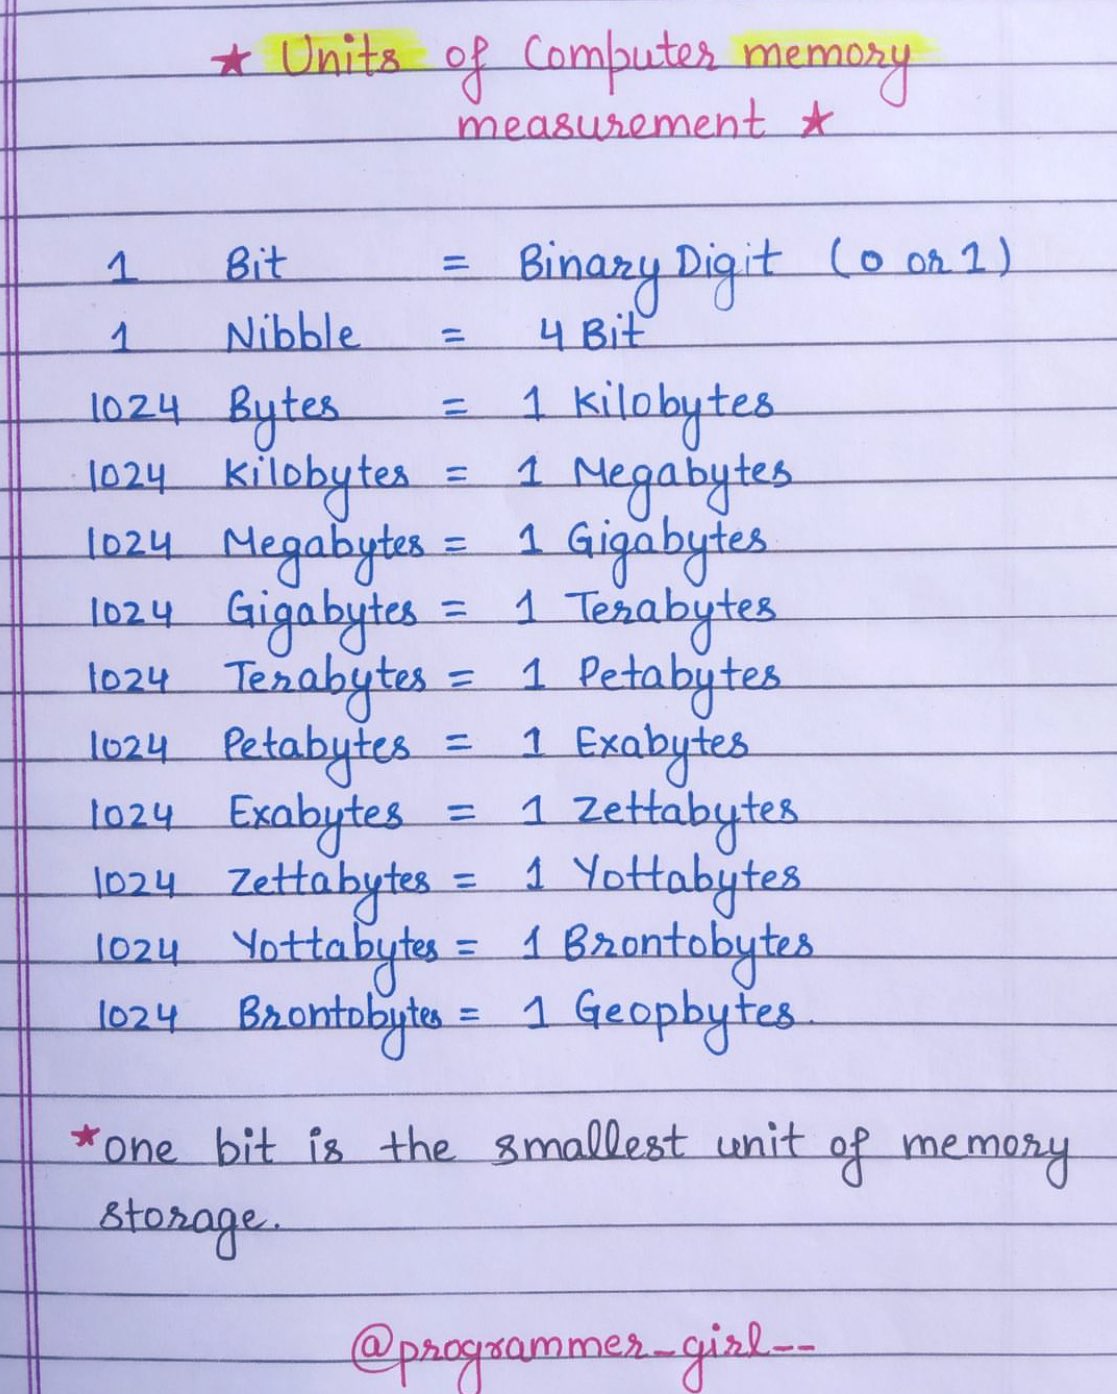 ★ Units of Computer memory
measurement ★
1 Bit = Binary Digit (0 or 1)
1 Nibble = 4 Bit
1024 Bytes = 1 Kilobytes
1024 Kilobytes = 1 Megabytes
1024 Megabytes = 1 Gigabytes
1024 Gigabytes = 1 Terabytes
1024 Terabytes = 1 Petabytes
1024 Petabytes = 1 Exabytes
1024 Exabytes = 1 Zettabytes
1024 Zettabytes = 1 Yottabytes
1024 Yottabytes = 1 Brontobytes
1024 Brontobytes = 1 Geopbytes.
★one bit is the smallest unit of memory
storage.
@programmer_girl--